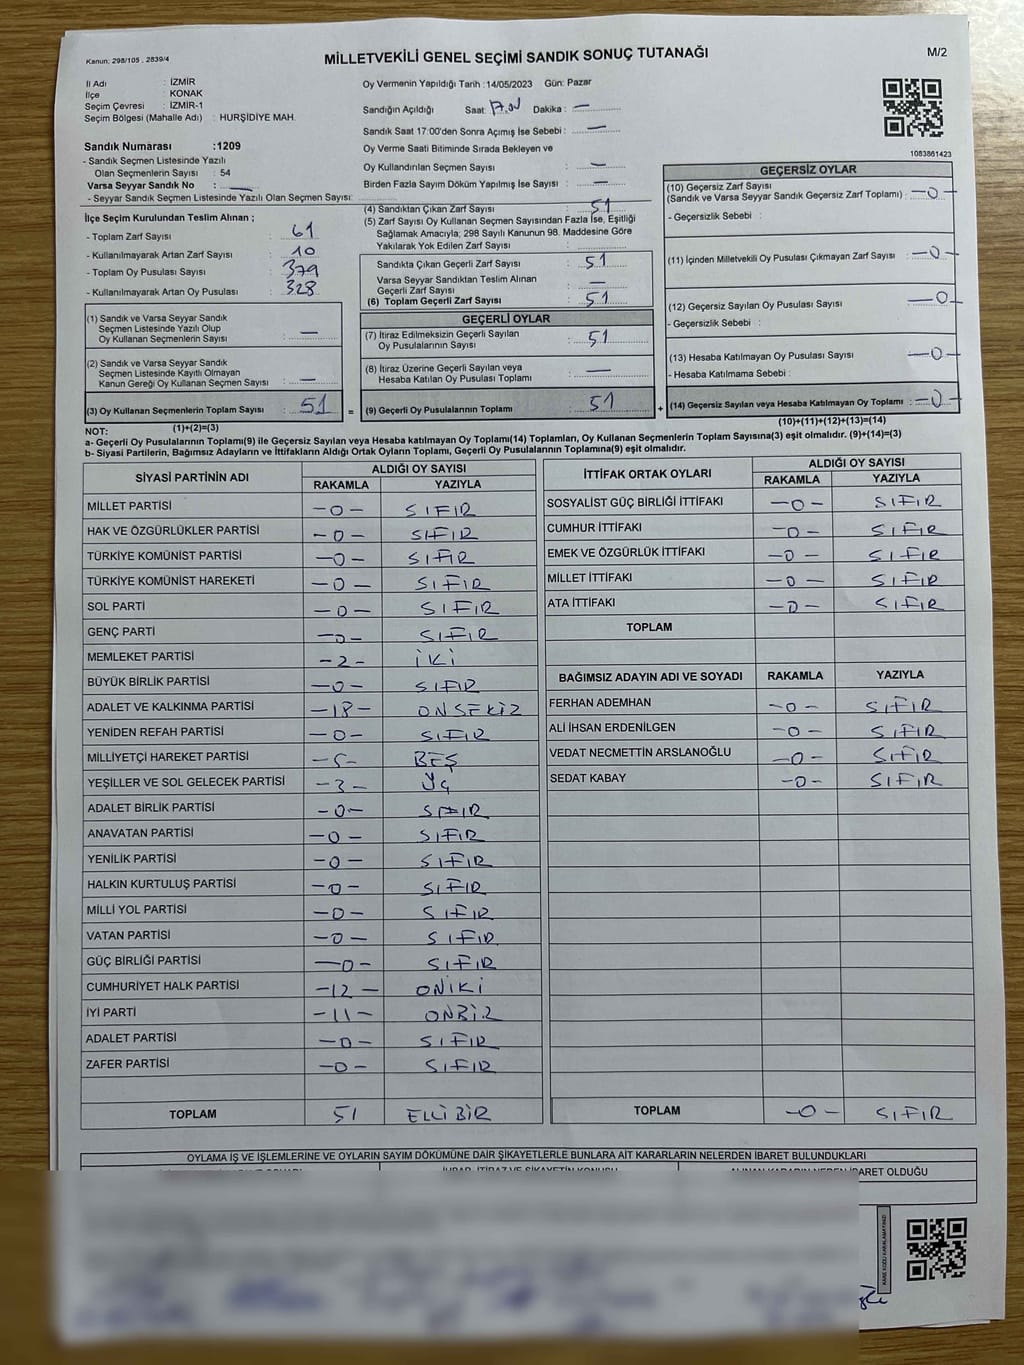 Kanun: 298/105 , 2839/4
MİLLETVEKİLİ GENEL SEÇİMİ SANDIK SONUÇ TUTANAĞI
M/2
İl Adı : İZMİR
İlçe : KONAK
Seçim Çevresi : İZMİR-1
Seçim Bölgesi (Mahalle Adı) : HURŞİDİYE MAH.
Oy Vermenin Yapıldığı Tarih :14/05/2023 Gün: Pazar
Sandığın Açıldığı Saat: 17.00 Dakika : —
Sandık Saat 17:00'den Sonra Açımış İse Sebebi : —
Oy Verme Saati Bitiminde Sırada Bekleyen ve
Oy Kullandırılan Seçmen Sayısı : —
Birden Fazla Sayım Döküm Yapılmış İse Sayısı : —
1083861423
Sandık Numarası :1209
- Sandık Seçmen Listesinde Yazılı
Olan Seçmenlerin Sayısı : 54
Varsa Seyyar Sandık No : —
- Seyyar Sandık Seçmen Listesinde Yazılı Olan Seçmen Sayısı:
İlçe Seçim Kurulundan Teslim Alınan ;
- Toplam Zarf Sayısı : 61
- Kullanılmayarak Artan Zarf Sayısı : 10
- Toplam Oy Pusulası Sayısı : 379
- Kullanılmayarak Artan Oy Pusulası : 328
(1) Sandık ve Varsa Seyyar Sandık
Seçmen Listesinde Yazılı Olup
Oy Kullanan Seçmenlerin Sayısı : —
(2) Sandık ve Varsa Seyyar Sandık
Seçmen Listesinde Kayıtlı Olmayan
Kanun Gereği Oy Kullanan Seçmen Sayısı : —
(3) Oy Kullanan Seçmenlerin Toplam Sayısı : 51 =
(1)+(2)=(3)
(4) Sandıktan Çıkan Zarf Sayısı : 51
(5) Zarf Sayısı Oy Kullanan Seçmen Sayısından Fazla İse, Eşitliği
Sağlamak Amacıyla; 298 Sayılı Kanunun 98. Maddesine Göre
Yakılarak Yok Edilen Zarf Sayısı :
Sandıkta Çıkan Geçerli Zarf Sayısı : 51
Varsa Seyyar Sandıktan Teslim Alınan
Geçerli Zarf Sayısı : —
(6) Toplam Geçerli Zarf Sayısı : 51
GEÇERLİ OYLAR
(7) İtiraz Edilmeksizin Geçerli Sayılan
Oy Pusulalarının Sayısı : 51
(8) İtiraz Üzerine Geçerli Sayılan veya
Hesaba Katılan Oy Pusulası Toplamı : —
(9) Geçerli Oy Pusulalarının Toplamı : 51 +
GEÇERSİZ OYLAR
(10) Geçersiz Zarf Sayısı
(Sandık ve Varsa Seyyar Sandık Geçersiz Zarf Toplamı) : —0—
- Geçersizlik Sebebi :
(11) İçinden Milletvekili Oy Pusulası Çıkmayan Zarf Sayısı : —0—
(12) Geçersiz Sayılan Oy Pusulası Sayısı : —0—
- Geçersizlik Sebebi :
(13) Hesaba Katılmayan Oy Pusulası Sayısı : —0—
- Hesaba Katılmama Sebebi :
(14) Geçersiz Sayılan veya Hesaba Katılmayan Oy Toplamı : —0—
(10)+(11)+(12)+(13)=(14)
NOT:
a- Geçerli Oy Pusulalarının Toplamı(9) ile Geçersiz Sayılan veya Hesaba katılmayan Oy Toplamı(14) Toplamları, Oy Kullanan Seçmenlerin Toplam Sayısına(3) eşit olmalıdır. (9)+(14)=(3)
b- Siyasi Partilerin, Bağımsız Adayların ve İttifakların Aldığı Ortak Oyların Toplamı, Geçerli Oy Pusulalarının Toplamına(9) eşit olmalıdır.
SİYASİ PARTİNİN ADI ALDIĞI OY SAYISI
RAKAMLA YAZIYLA
MİLLET PARTİSİ —0— SIFIR
HAK VE ÖZGÜRLÜKLER PARTİSİ —0— SIFIR
TÜRKİYE KOMÜNİST PARTİSİ —0— SIFIR
TÜRKİYE KOMÜNİST HAREKETİ —0— SIFIR
SOL PARTİ —0— SIFIR
GENÇ PARTİ —0— SIFIR
MEMLEKET PARTİSİ —2— İKİ
BÜYÜK BİRLİK PARTİSİ —0— SIFIR
ADALET VE KALKINMA PARTİSİ —18— ONSEKİZ
YENİDEN REFAH PARTİSİ —0— SIFIR
MİLLİYETÇİ HAREKET PARTİSİ —5— BEŞ
YEŞİLLER VE SOL GELECEK PARTİSİ —3— ÜÇ
ADALET BİRLİK PARTİSİ —0— SIFIR
ANAVATAN PARTİSİ —0— SIFIR
YENİLİK PARTİSİ —0— SIFIR
HALKIN KURTULUŞ PARTİSİ —0— SIFIR
MİLLİ YOL PARTİSİ —0— SIFIR
VATAN PARTİSİ —0— SIFIR
GÜÇ BİRLİĞİ PARTİSİ —0— SIFIR
CUMHURİYET HALK PARTİSİ —12— ONİKİ
İYİ PARTİ —11— ONBİR
ADALET PARTİSİ —0— SIFIR
ZAFER PARTİSİ —0— SIFIR
TOPLAM 51 ELLİBİR
İTTİFAK ORTAK OYLARI ALDIĞI OY SAYISI
RAKAMLA YAZIYLA
SOSYALİST GÜÇ BİRLİĞİ İTTİFAKI —0— SIFIR
CUMHUR İTTİFAKI —0— SIFIR
EMEK VE ÖZGÜRLÜK İTTİFAKI —0— SIFIR
MİLLET İTTİFAKI —0— SIFIR
ATA İTTİFAKI —0— SIFIR
TOPLAM
BAĞIMSIZ ADAYIN ADI VE SOYADI RAKAMLA YAZIYLA
FERHAN ADEMHAN —0— SIFIR
ALİ İHSAN ERDENİLGEN —0— SIFIR
VEDAT NECMETTİN ARSLANOĞLU —0— SIFIR
SEDAT KABAY —0— SIFIR
TOPLAM —0— SIFIR
OYLAMA İŞ VE İŞLEMLERİNE VE OYLARIN SAYIM DÖKÜMÜNE DAİR ŞİKAYETLERLE BUNLARA AİT KARARLARIN NELERDEN İBARET BULUNDUKLARI
İHBAR, İTİRAZ VE ŞİKAYETİN KONUSU ALINAN KARARIN NEDEN İBARET OLDUĞU
KARE KODU KARALAMAYINIZ!